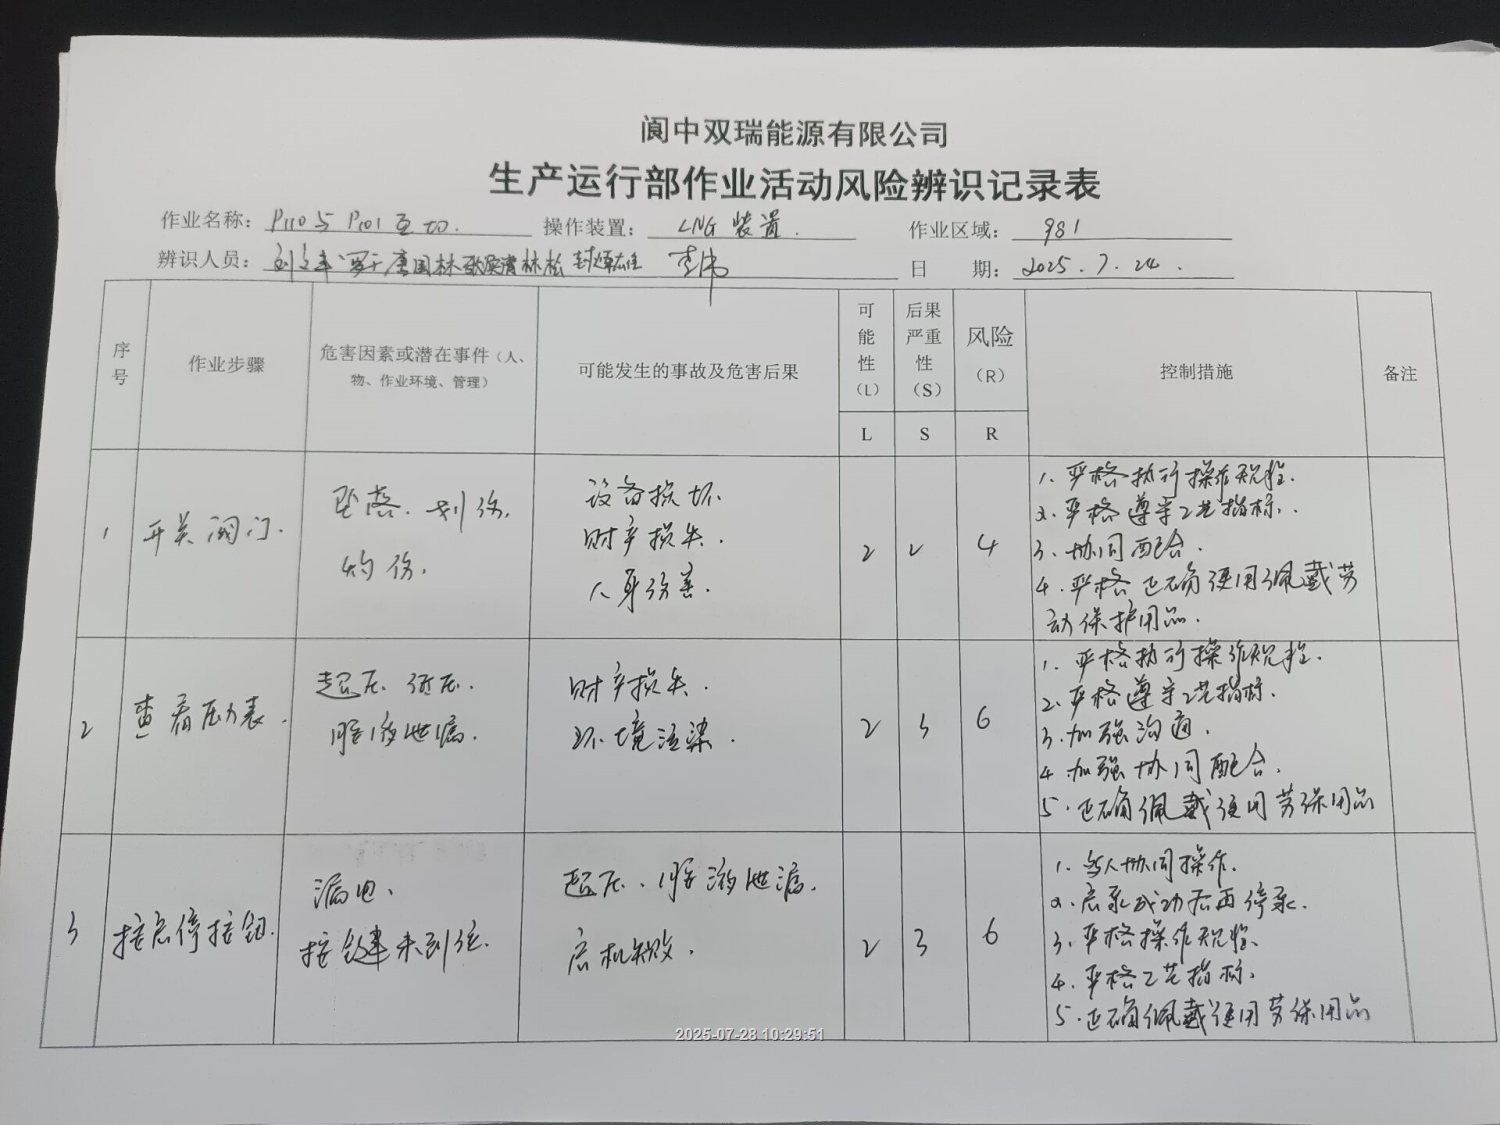 阆中双瑞能源有限公司
生产运行部作业活动风险辨识记录表
作业名称: P110与P101互切. 操作装置: LNG 装置. 作业区域: 981
辨识人员: 罗于 唐国林 林松 李伟 日 期: 2025.7.24.
序号 作业步骤 危害因素或潜在事件（人、物、作业环境、管理） 可能发生的事故及危害后果 可能性（L） 后果严重性（S） 风险（R） 控制措施 备注
L S R
1 开关阀门.
坠落. 划伤.
灼伤.
设备损坏.
财产损失.
人身伤害.
2 2 4
1. 严格执行操作规程.
2. 严格遵守工艺指标.
3. 协同配合.
4. 严格正确使用佩戴劳
动保护用品.
2 查看压力表.
超压. 低压.
胺液泄漏.
财产损失.
环境污染.
2 3 6
1. 严格执行操作规程.
2. 严格遵守工艺指标.
3. 加强沟通.
4. 加强协同配合.
5. 正确佩戴使用劳保用品
3 按启停按钮.
漏电、
按键未到位.
超压、胺液泄漏.
启机失败.
2 3 6
1. 多人协同操作.
2. 启泵成功后再停泵.
3. 严格操作规程.
4. 严格工艺指标.
5. 正确佩戴使用劳保用品
2025-07-28 10:29:51